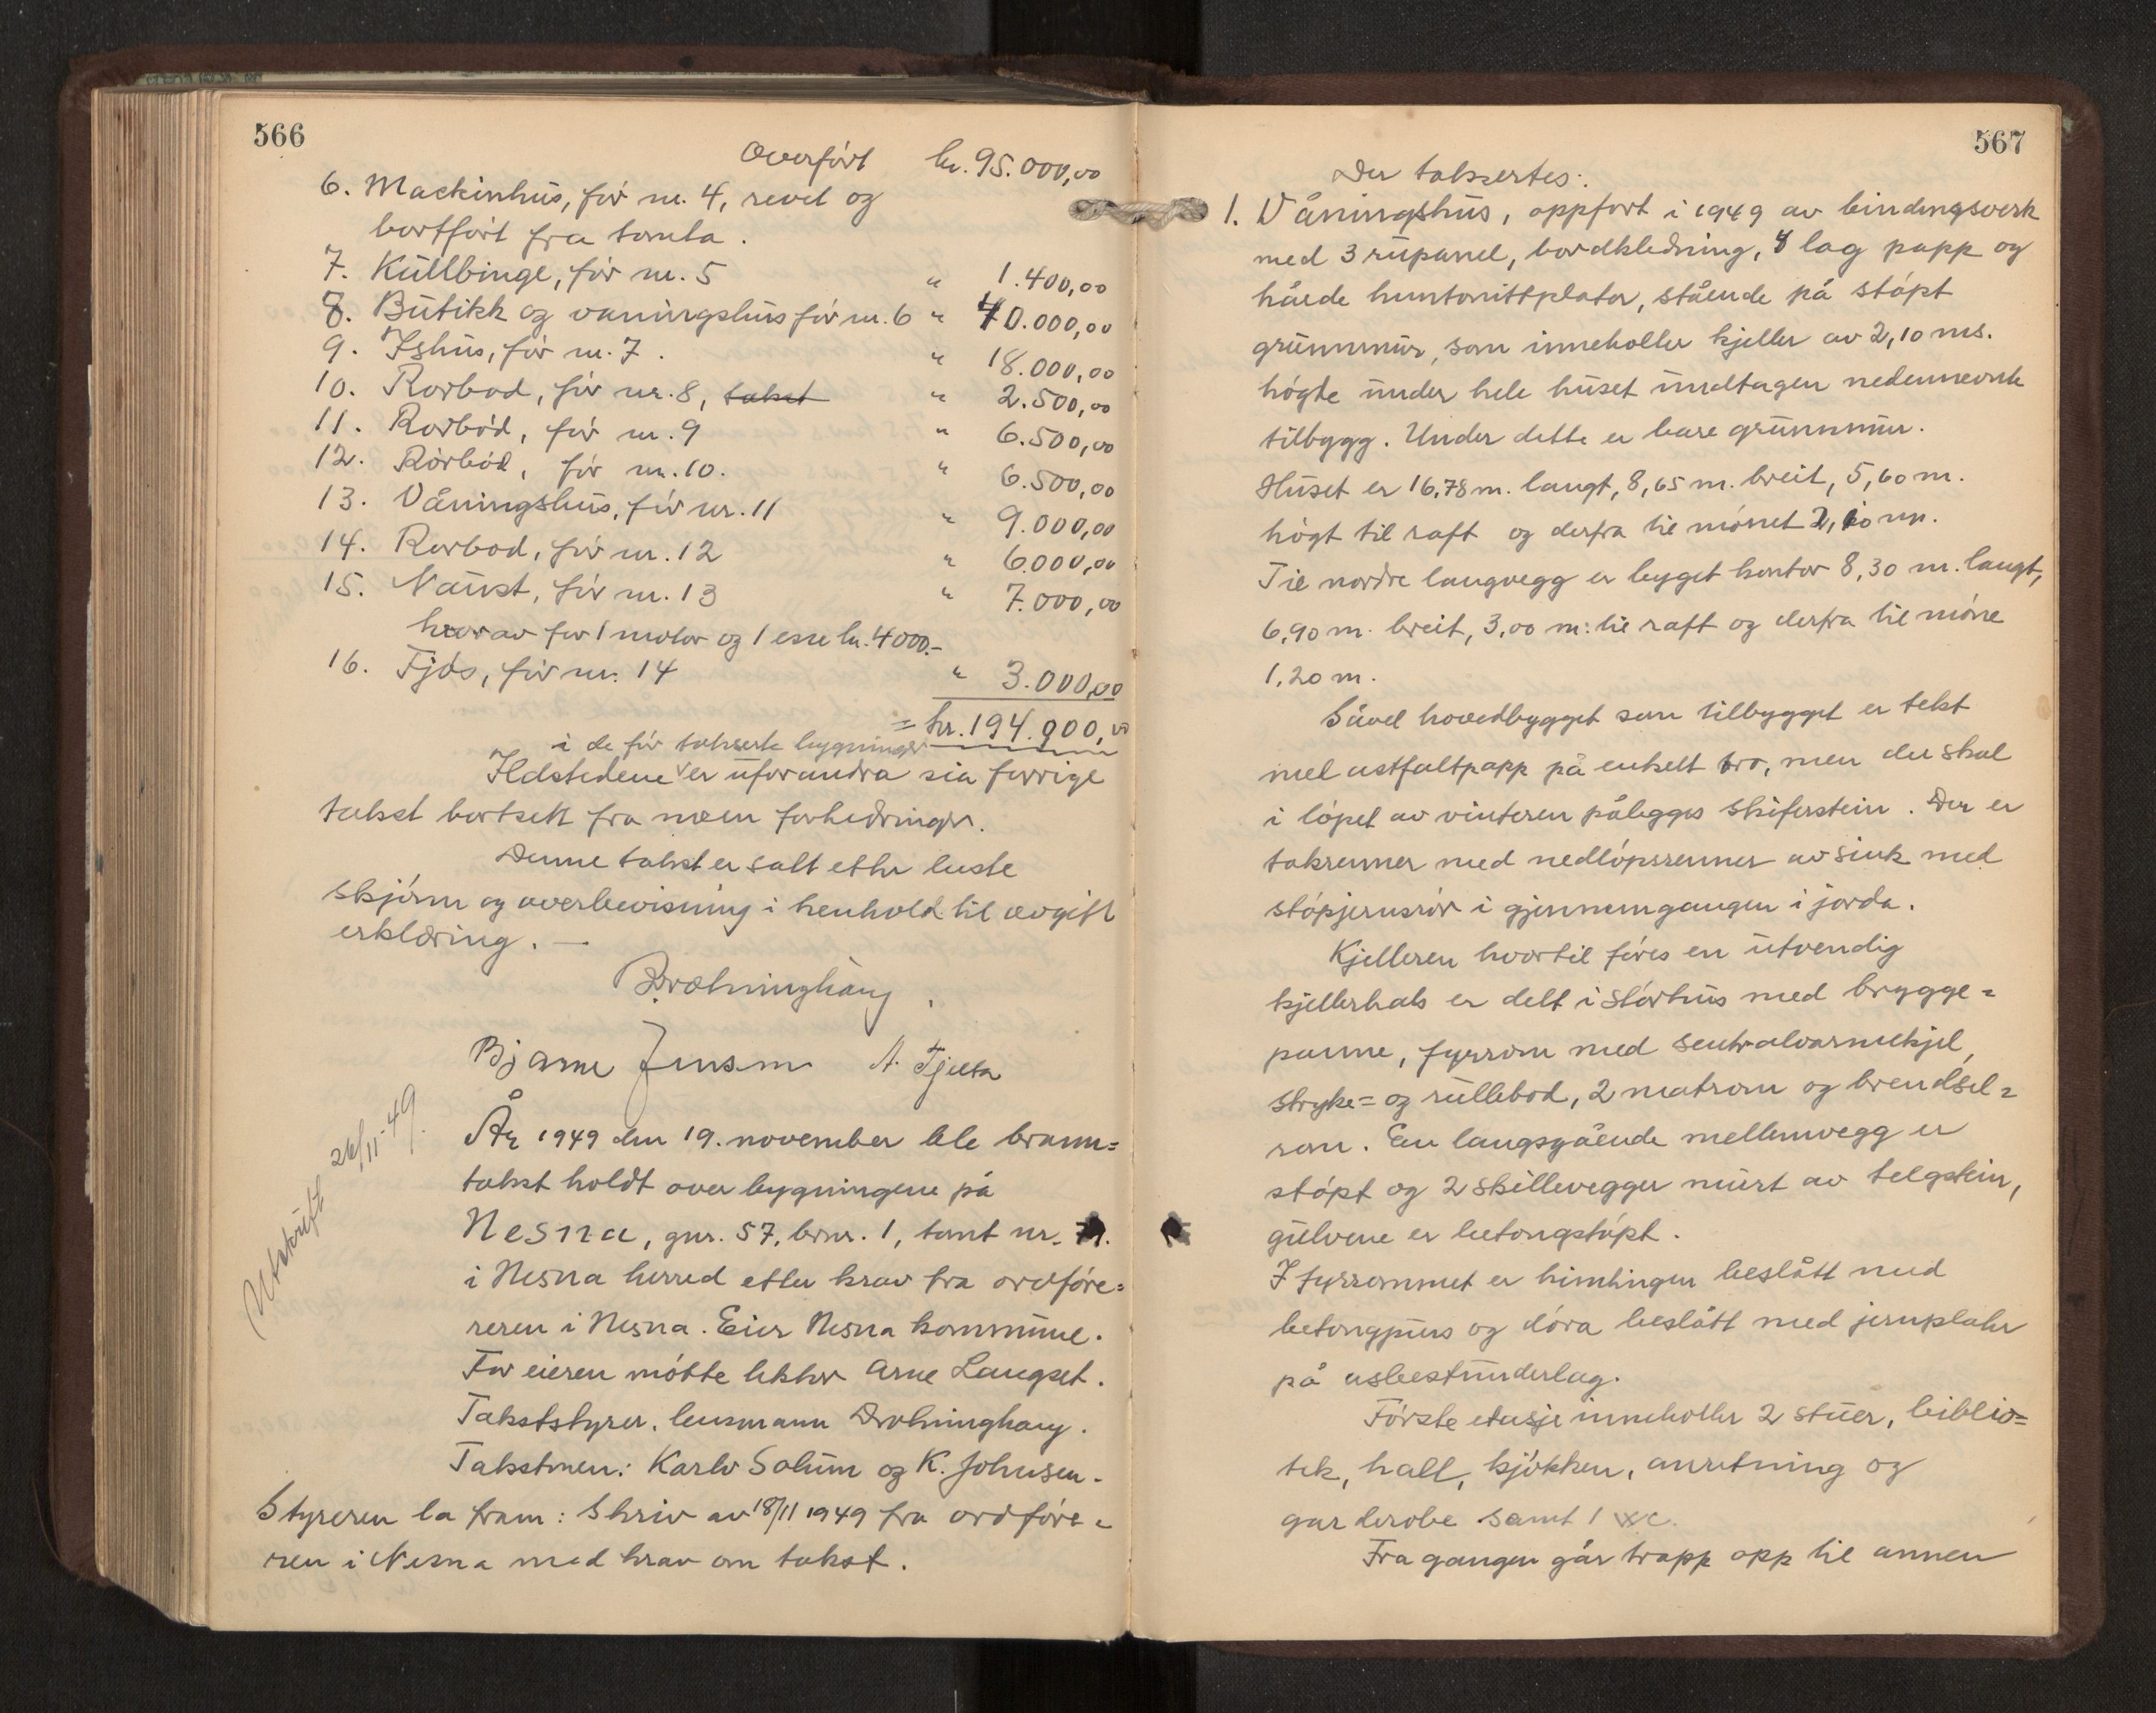 566
Overført kr. 95.000,00
6. Maskinhus, før nr. 4, revet og
bortført fra tomta.
7. Kullbinge, før nr. 5 " 1.400,00
8. Butikk og vaningshus før nr. 6 " 40.000,00
9. Ishus, før nr. 7. " 18.000,00
10. Rorbod, før nr. 8, takst " 2.500,00
11. Rorbod, før nr. 9 " 6.500,00
12. Rorbod, før nr. 10. " 6.500,00
13. Våningshus, før nr. 11 " 9.000,00
14. Rorbod, før nr. 12 " 6.000,00
15. Naust, før nr. 13 " 7.000,00
hvorav for 1 motor og 1 esse kr. 4000.-
16. Fjøs, før nr. 14 " 3.000,00
= kr. 194.900,00
i de før takserte bygninger
Ildstedene er uforandra sia forrige
takst bortsett fra noen forbedringer.
Denne takst er satt etter beste
skjønn og overbevisning i henhold til avgitt
erklæring. —
Drotninghaug.
Bjarne Jensen A. Fjelta
Utskrift 26/11-49.
År 1949 den 19. november ble brann=
takst holdt over bygningene på
Nesna, gnr. 57, brnr. 1, tomt nr.
i Nesna herred etter krav fra ordføre=
reren i Nesna. Eier Nesna kommune.
For eieren møtte lektor Arne Langset.
Takststyrer, lensmann Drotninghaug.
Takstmen: Karlo Solum og K. Johnsen.
Styreren la fram: Skriv av 18/11 1949 fra ordføre=
ren i Nesna med krav om takst.
567
Der taksertes:
1. Våningshus, oppført i 1949 av bindingsverk
med 3 rupanel, bordkledning, 4 lag papp og
hårde huntonittplater, stående på støpt
grunnmur, som inneholler kjeller av 2,10 ms.
høgte under hele huset undtagen nedennevnte
tilbygg. Under dette er bare grunnmur.
Huset er 16,78 m. langt, 8,65 m. breit, 5,60 m.
høgt til raft og derfra til mønet 2,10 m.
Til nordre langvegg er bygget kontor 8,30 m. langt,
6,90 m. breit, 3,00 m. til raft og derfra til møne
1,20 m.
Såvel hovedbygget som tilbygget er tekt
med astfaltpapp på enkelt tro, men der skal
i løpet av vinteren pålegges skiferstein. Der er
takrenner med nedløpsrenner av sink med
støpjernsrør i gjennemgangen i jorda.
Kjelleren hvortil føres en utvendig
kjellerhals er delt i størhus med brygge=
panne, fyrrom med sentralvarmekjel,
stryke= og rullebod, 2 matrom og brendsel=
rom. En langsgående mellemvegg er
støpt og 2 skillevegger murt av telgstein,
gulvene er betongstøpt.
I fyrrommet er himlingen beslått med
betongpuss og døra beslått med jernplater
på asbestunderlag.
Første etasje inneholler 2 stuer, biblio=
tek, hall, kjøkken, anretning og
garderobe samt 1 wc.
Fra gangen går trapp opp til annen